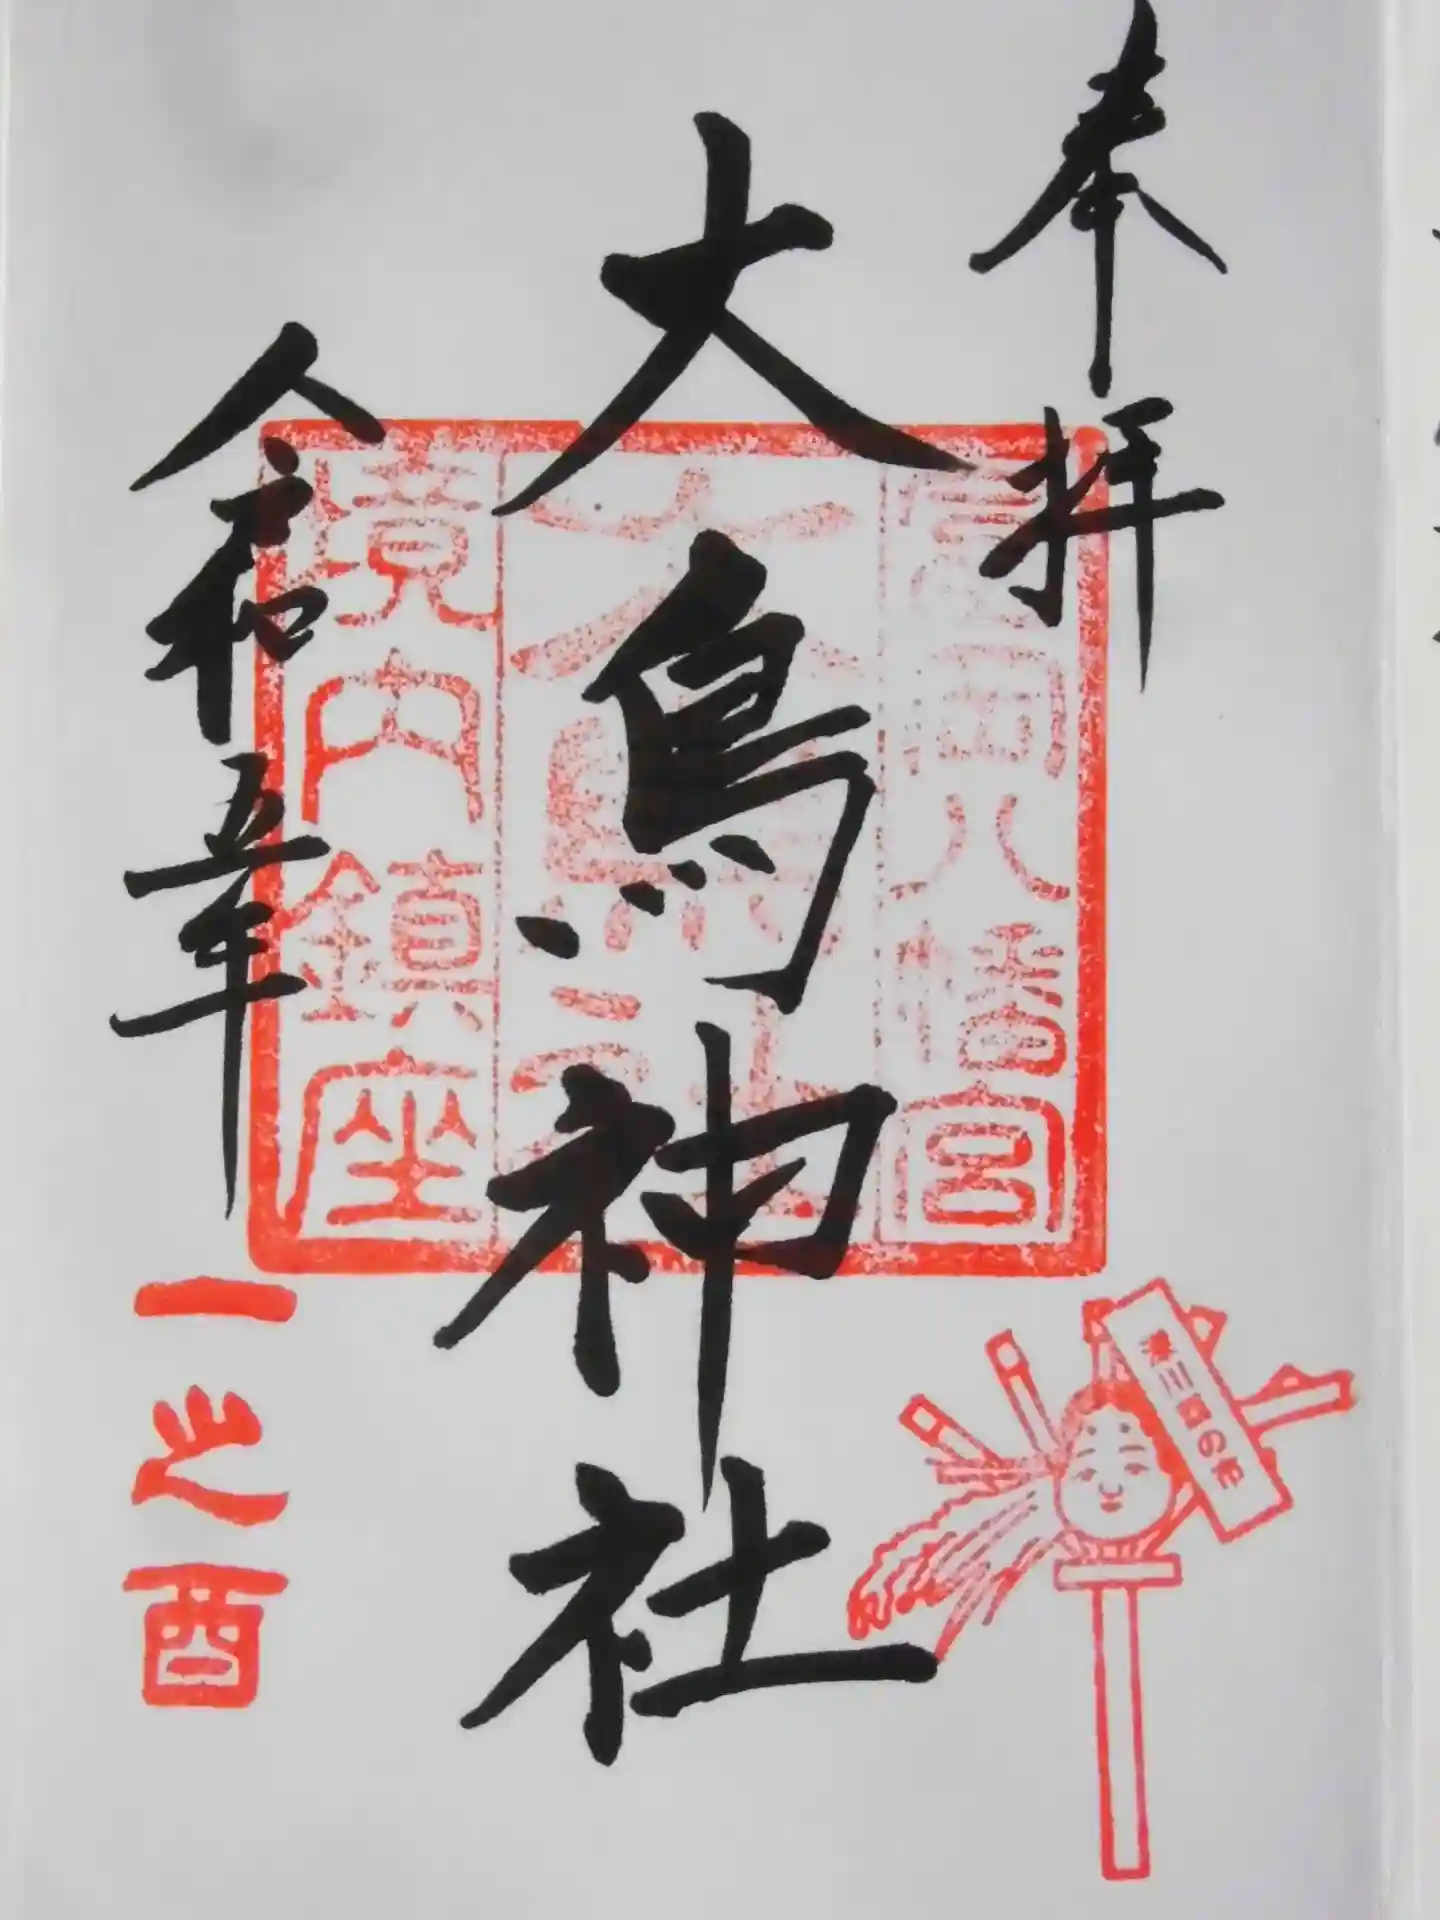 奉拝
富岡八幡宮
大鳥神社
大鳥神社
境内鎮座
令和五年
一之酉